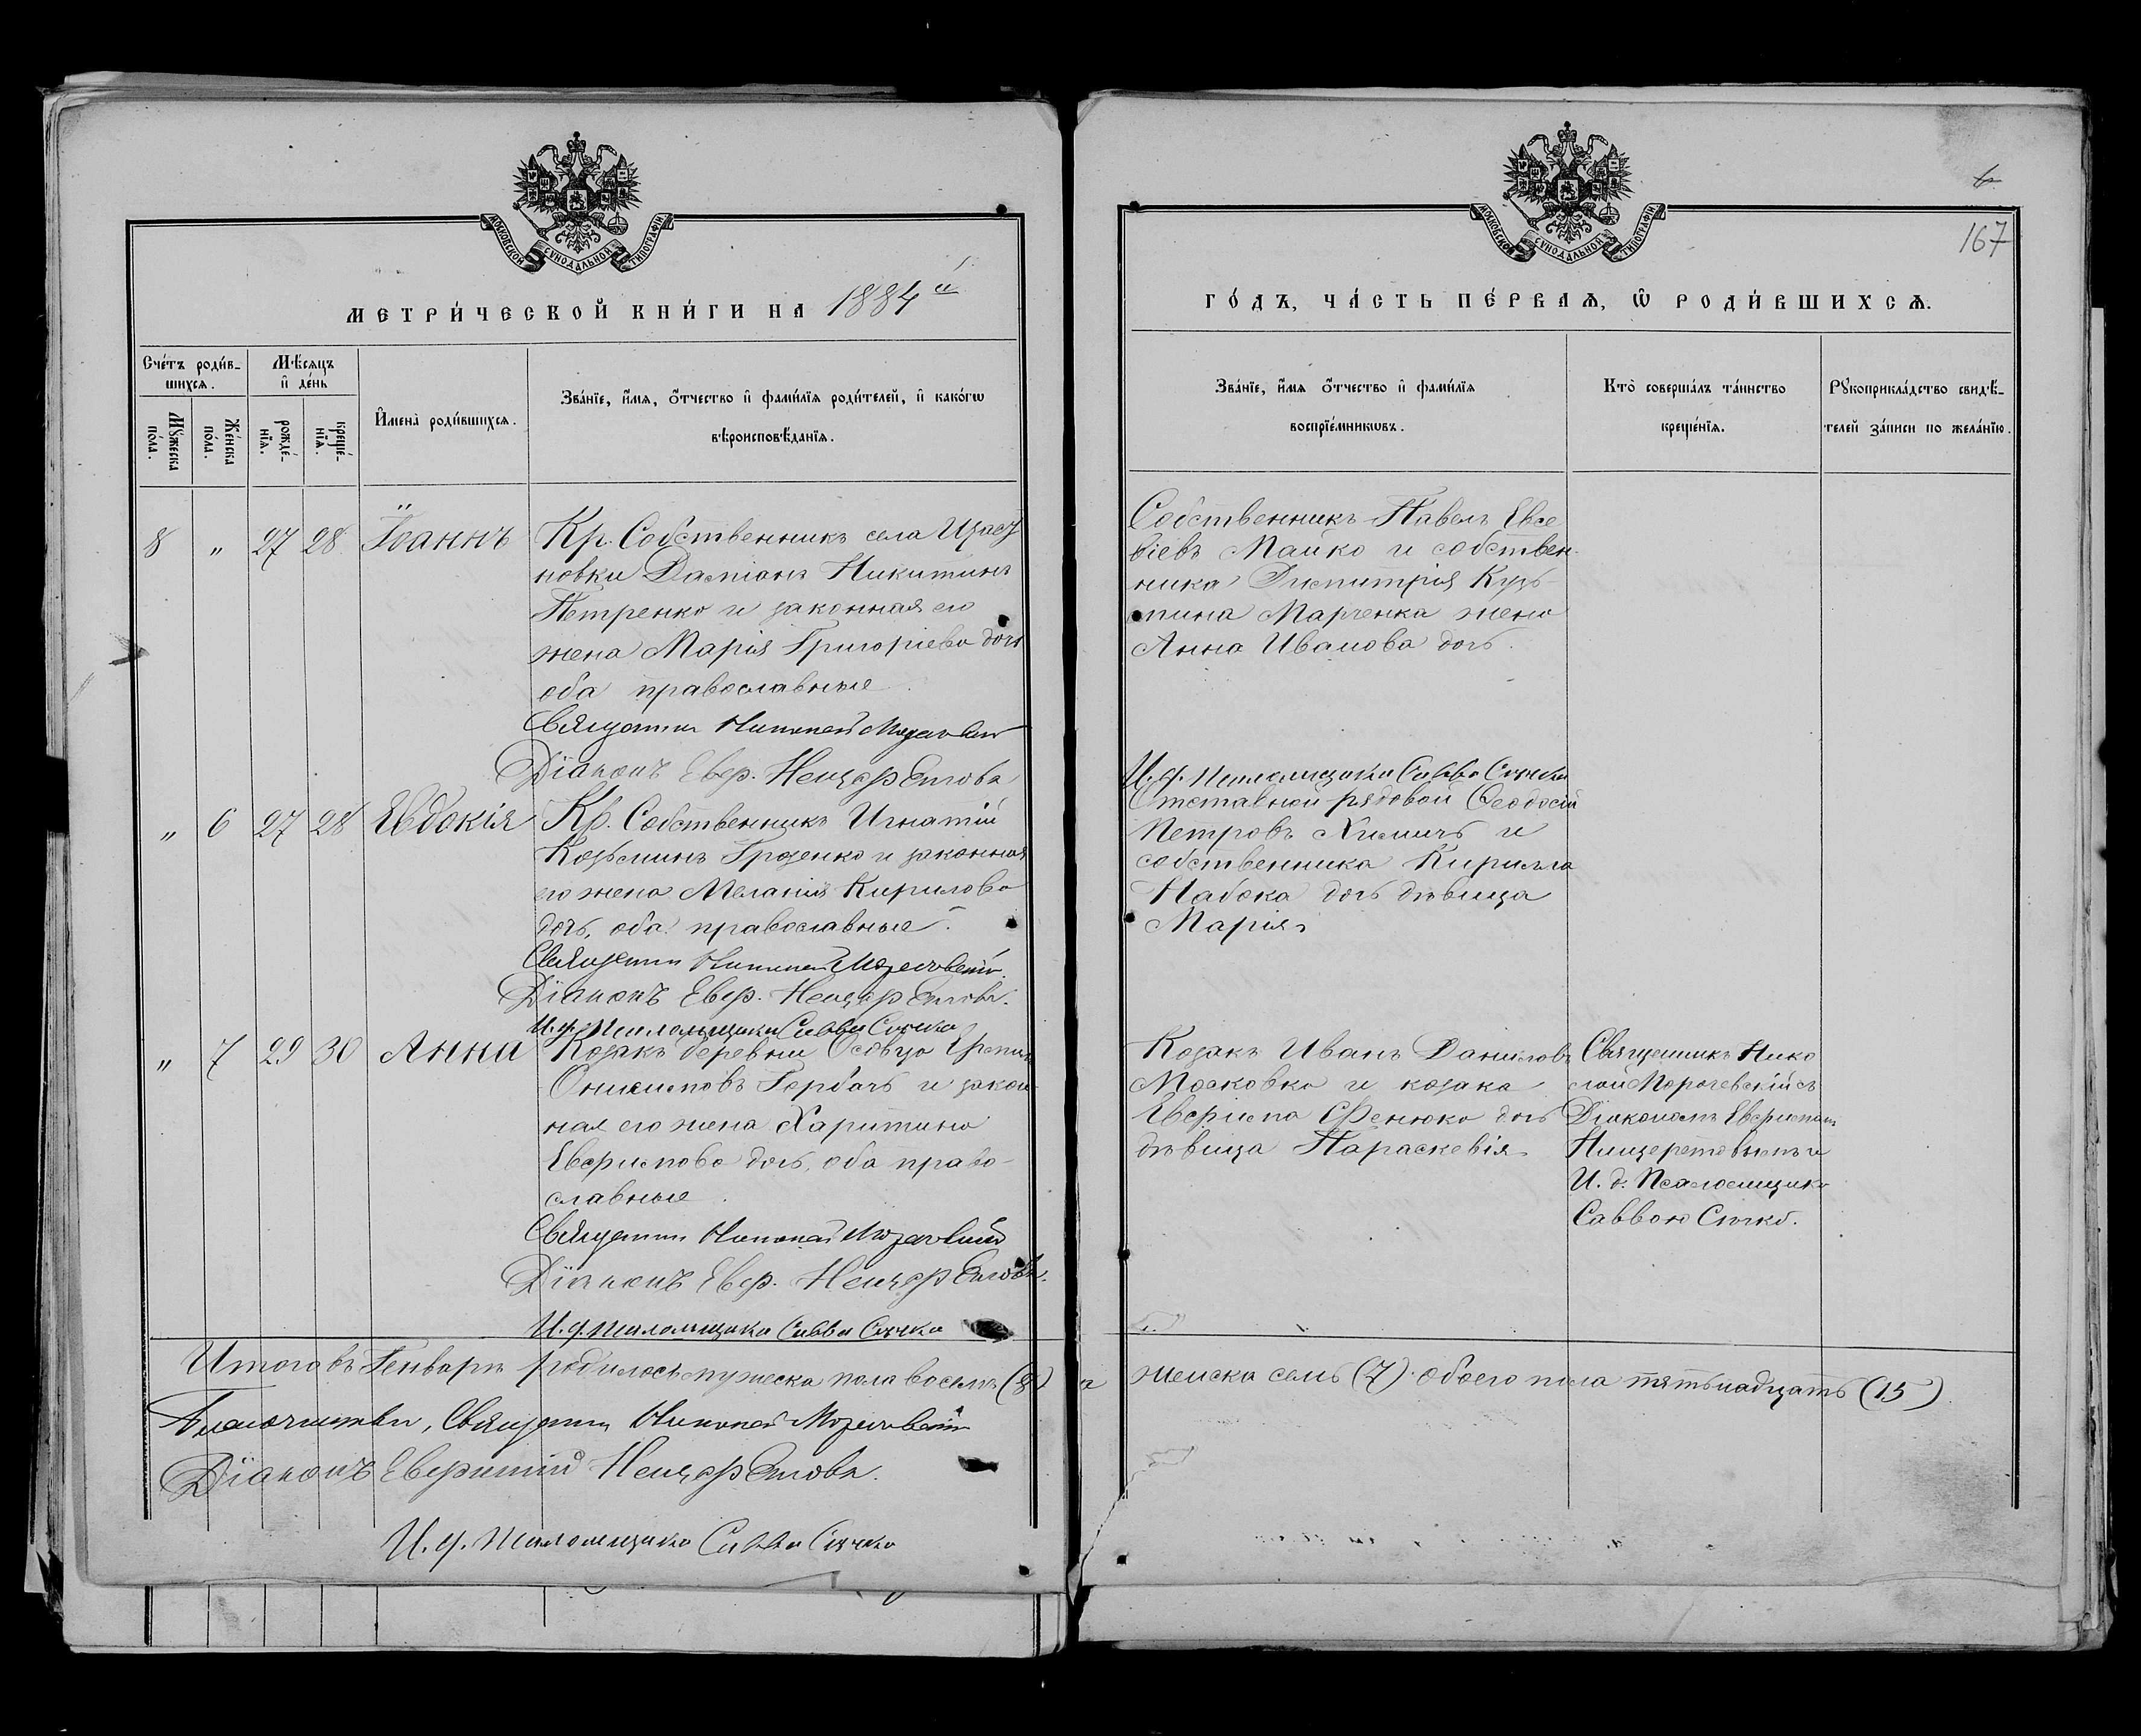 МОСКОВСКОЙ СѴНОДАЛЬНОЙ ТИПОГРАФІИ
МЕТРИ́ЧЕСКОЙ КНИ́ГИ НА 1884й
Сче́тъ роди́в-
шихсѧ.
Мѣ́сѧцъ
и҆ де́нь
Мꙋ́жеска
по́ла.
Же́нска
по́ла.
рожде́-
нїѧ.
креще́-
нїѧ.
И҆мена̀ роди́вшихсѧ.
Зва́нїе, и҆́мѧ, ѻ҆́тчество и҆ фами́лїѧ роди́телей, и҆ како́гѡ
вѣроисповѣ́данїѧ.
8 " 27 28 Іоаннъ
Кр. Собственникъ села
новки Даміанъ Никитинъ
Петренко и законная его
жена Марія Григоріева дочь
оба православные
Священник Николай
Діаконъ Евер.
" 6 27 28 Евдокія
Кр. Собственникъ Игнатій
Козьминъ Грозенко и законная
его жена Меланія Кирилова
дочь, оба православные.
Священник Николай
Діаконъ Евер.
И. д. Псаломщика Савва Сичко
" 7 29 30 Анна
Козакъ деревни Осовца
Онисимовъ Горбачъ и закон-
ная его жена Харитина
Евфимова дочь, оба право-
славные.
Священник Николай
Діаконъ Евер.
И. д. Псаломщика Савва Сичко
Итого въ Генварѣ родилось мужеска пола восемь (8)
Священник Николай
Діаконъ
И. д. Псаломщика Савва Сичко
МОСКОВСКОЙ СѴНОДАЛЬНОЙ ТИПОГРАФІИ
6
167
ГО́ДЪ, ЧА́СТЬ ПЕ́РВАѦ, Ѡ҆ РОДИ́ВШИХСѦ.
Зва́нїе, и҆́мѧ ѻ҆́тчество и҆ фами́лїѧ
воспрїе́мникѡвъ.
Кто̀ соверша́лъ та́инство
креще́нїѧ.
Рꙋкоприкла́дство свидѣ́-
телей за́писи по жела́нїю.
Собственникъ Павелъ Евсе
віевъ Майко и собствен-
ника Димитрія Кузь-
мина Марченка жена
Анна Иванова дочь.
И. д. Псаломщика Савва Сичко
Отставной рядовой Ѳеодосій
Петровъ Химичъ и
собственника Кирилла
Набока дочь дѣвица
Марія.
Козакъ Иванъ Даниловъ
Московка и козака
дочь
дѣвица Параскевія.
Священникъ Нико
лай съ
Діакономъ
и
И. д. Псаломщика
Саввою Сичко.
а женска семь (7) обоего пола пятьнадцать (15).